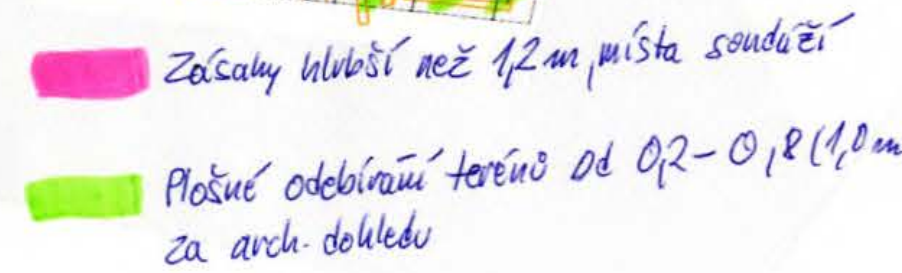 Zásahy hlubší než 1,2 m, místa sondáží
Plošné odebírání terénů od 0,2 - 0,8 (1,0 m
za arch. dohledu